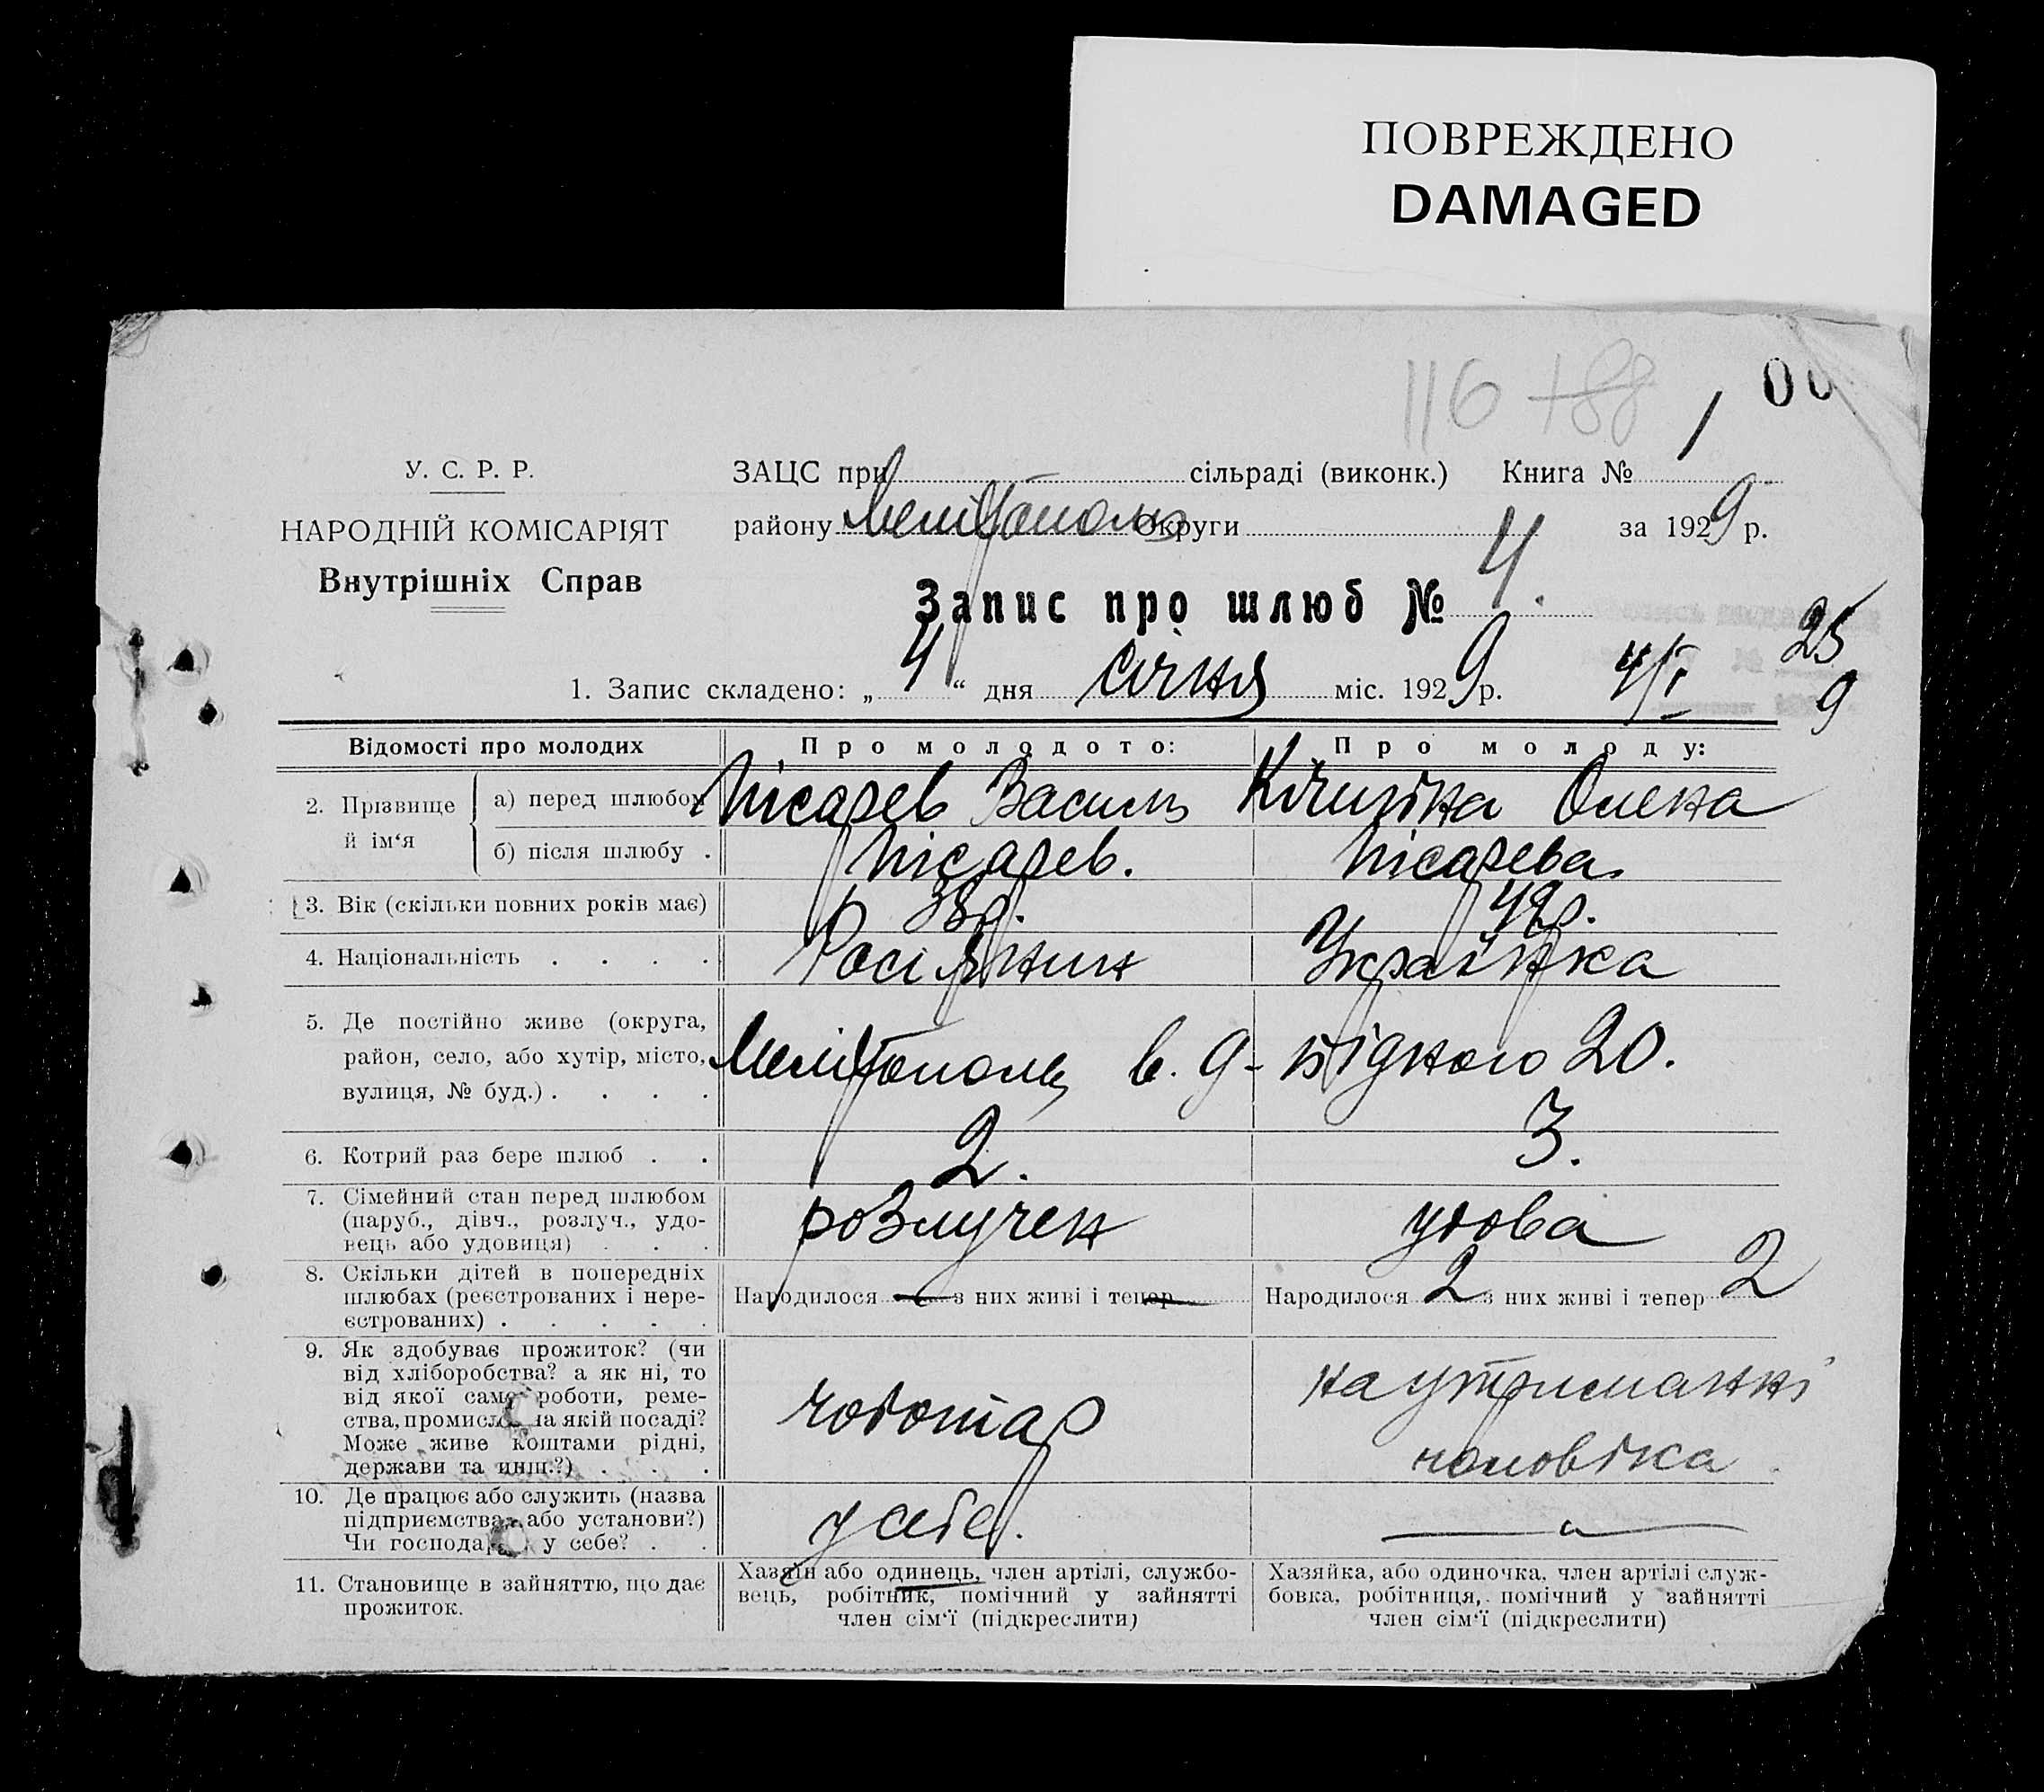 ПОВРЕЖДЕНО
DAMAGED
116 + 88
00
У. С. Р. Р.
НАРОДНІЙ КОМІСАРІЯТ
Внутрішніх Справ
ЗАЦС при сільраді (виконк.) Книга № 1
району Мелітополь Округи за 1929 р.
Запис про шлюб № 4.
1. Запис складено: „ 4 “ дня січня міс. 1929 р. 4/I 25
9
Відомості про молодих Про молодого: Про молоду:
2. Прізвище й ім‘я
а) перед шлюбом Пісарев Василь Олена
б) після шлюбу . Пісарев. Пісарева
3. Вік (скільки повних років має) 38 р. 42 р.
4. Національність . . . . Росіянин Українка
5. Де постійно живе (округа,
район, село, або хутір, місто,
вулиця, № буд.) . . . . Мелітополь в. Д-Бідного 20.
6. Котрий раз бере шлюб . . 2. 3.
7. Сімейний стан перед шлюбом
(паруб., дівч., розлуч., удо-
вець або удовиця) . . . розлучен удова
8. Скільки дітей в попередніх
шлюбах (реєстрованих і нере-
єстрованих) . . . . . Народилося — з них живі і тепер — Народилося 2 з них живі і тепер 2
9. Як здобуває прожиток? (чи
від хліборобства? а як ні, то
від якої само роботи, реме-
ства, промисл на якій посаді?
Може живе коштами рідні,
держави та инш.?) . . . чоботар на утриманні
чоловіка
10. Де працює або служить (назва
підприємства, або установи?)
Чи господар у себе? . . у себе. — " —
11. Становище в зайняттю, що дає
прожиток.
Хазяїн або одинець, член артілі, службо-
вець, робітник, помічний у зайнятті
член сім‘ї (підкреслити)
Хазяйка, або одиночка, член артілі служ-
бовка, робітниця, помічний у зайнятті
член сім‘ї (підкреслити)